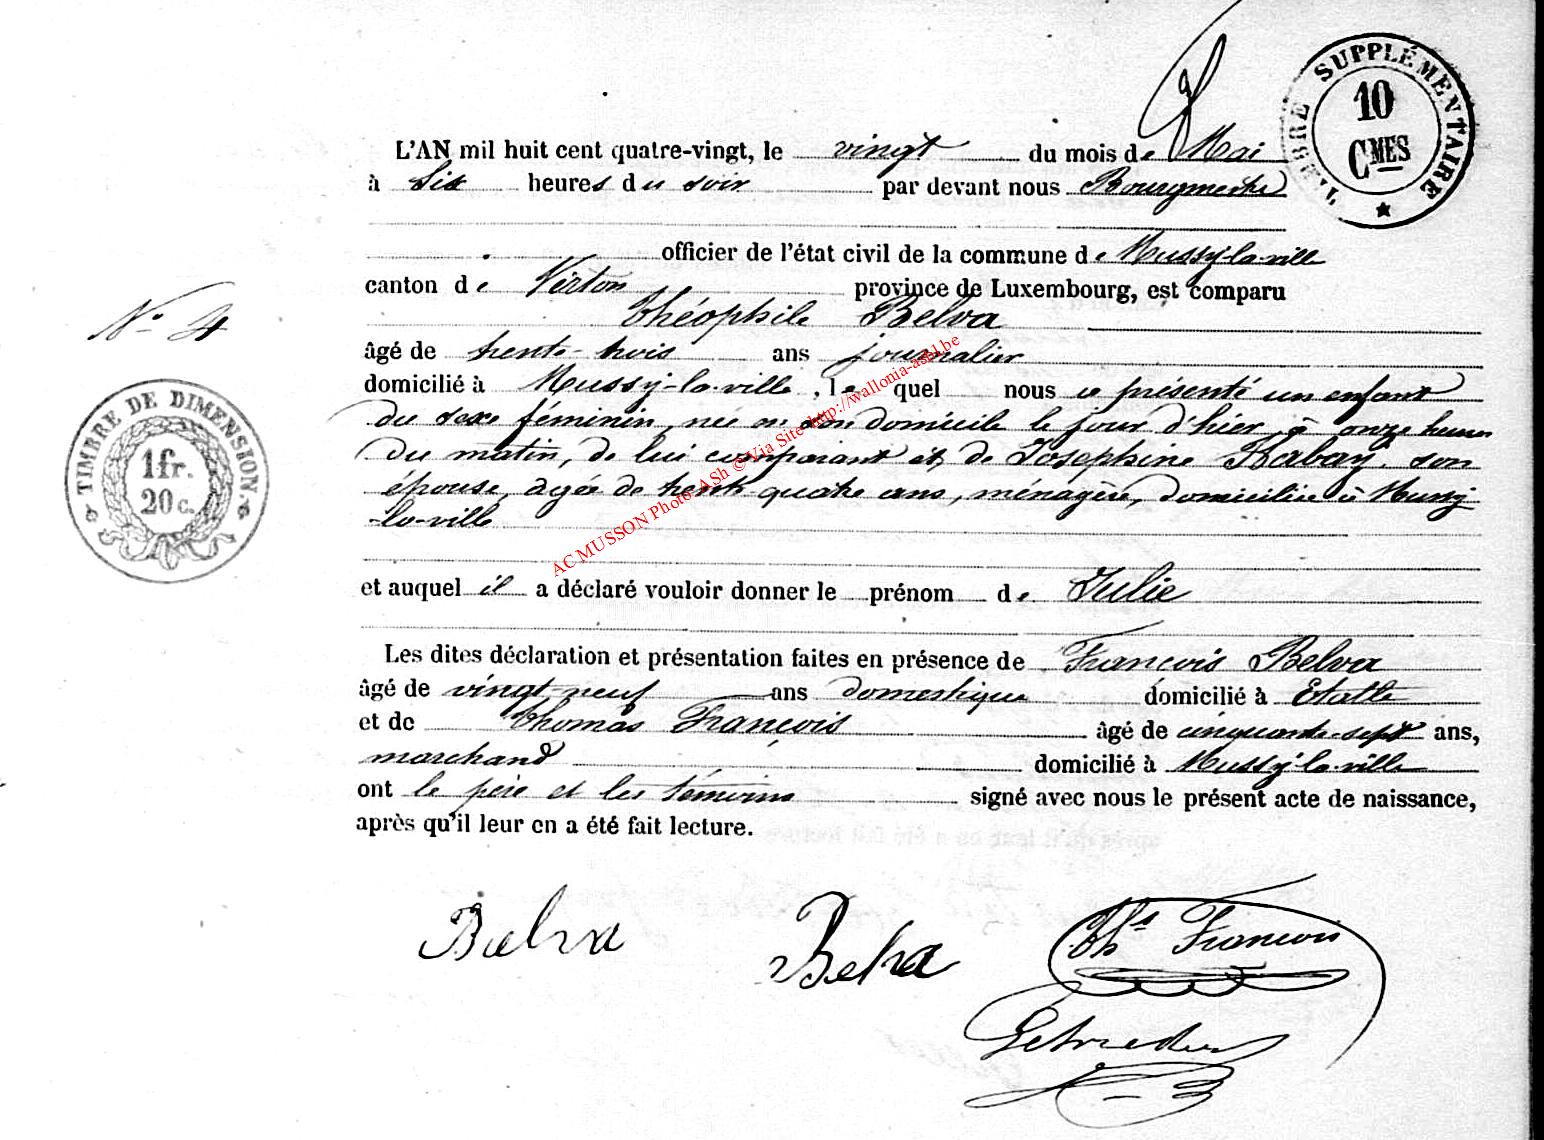 TIMBRE SUPPLÉMENTAIRE
10
CMES
L'AN mil huit cent quatre-vingt, le vingt du mois de Mai
à Six heures du soir par devant nous Bourgmestre
officier de l'état civil de la commune de Mussy-la-ville
canton de Virton province de Luxembourg, est comparu
Théophile Belva
N° 4
âgé de trente-trois ans journalier
domicilié à Mussy-la-ville, le quel nous a présenté un enfant
du sexe féminin, née en son domicile le jour d'hier à onze heures
du matin, de lui comparant et de Josephine Habay son
épouse, agée de trente-quatre ans, ménagère, domiciliée à Mussy
-la-ville
TIMBRE DE DIMENSION
1 fr.
20 c.
AC MUSSON Photo ASh © Via Site http://wallonia-asbl.be
et auquel il a déclaré vouloir donner le prénom de Julie
Les dites déclaration et présentation faites en présence de François Belva
âgé de vingt-neuf ans domestique domicilié à Etalle
et de Thomas François âgé de cinquante-sept ans,
marchand domicilié à Mussy-la-ville
ont le père et les témoins signé avec nous le présent acte de naissance,
après qu'il leur en a été fait lecture.
Belva Belva Ths François